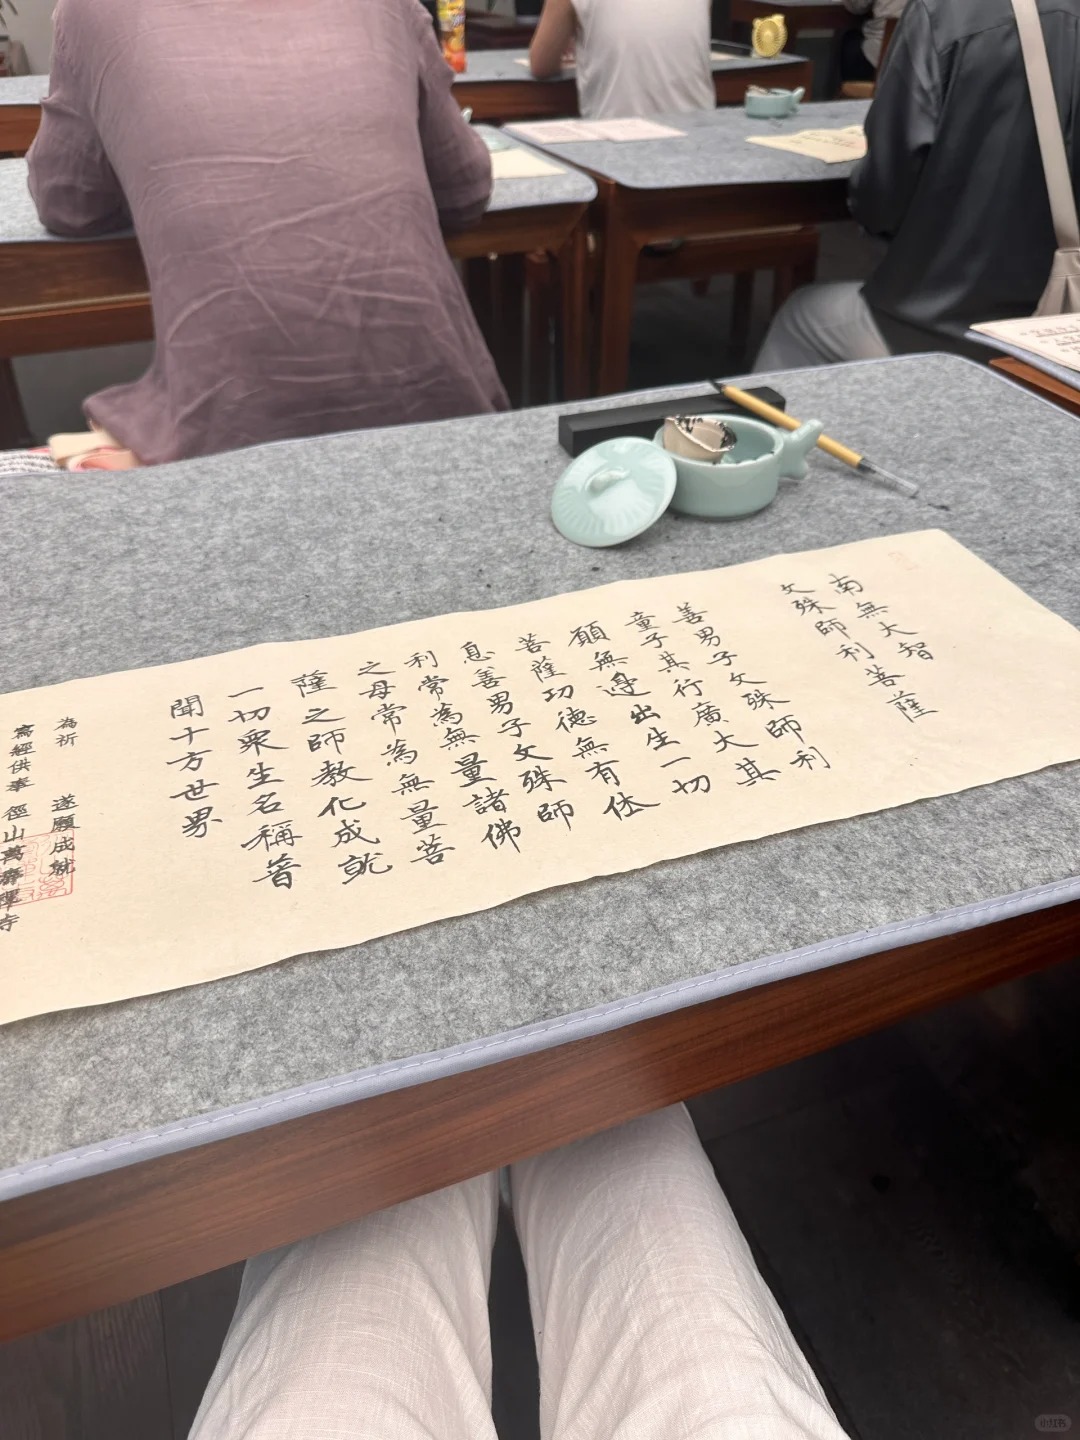 南無大智
文殊師利菩薩
善男子文殊師利
童子其行廣大其
願無邊出生一切
菩薩功德無有休
息善男子文殊師
利常為無量諸佛
之母常為無量菩
薩之師教化成就
一切眾生名稱普
聞十方世界
為祈 遂願成就
寫經供奉 徑山萬壽禪寺
小红书